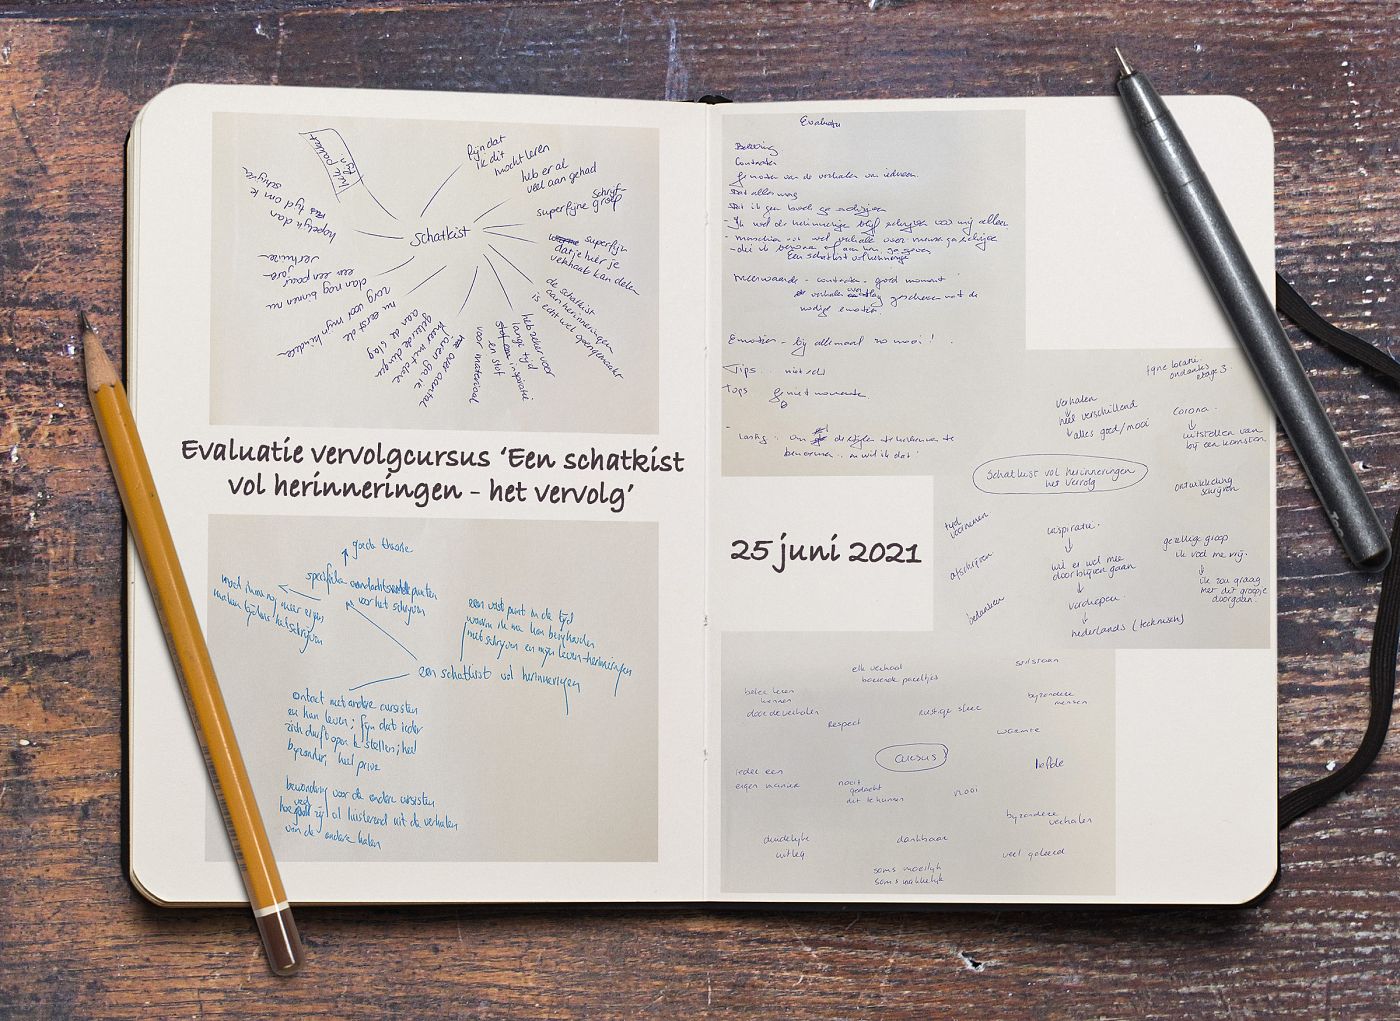 heel pakket
fijn
fijn dat
ik dit
mocht leren
heb er al
veel aan gehad
schrijf-
superfijne groep
superfijn
dat je hier je
verhaal kan delen
de schatkist
aan herinneringen
is echt wel opengemaakt
heb zeker voor
lange tijd
inspiratie
en stof
voor materiaal
over aantal
jaren ga ik
meer met deze
geleerde dingen
aan de slag
nu eerst de
zorg voor mijn kinderen
dan nog binnen nu
een een paar
jaar
verhuizen
hopelijk dan
tijd om te
schrijven
Schatkist
Evaluatie vervolgcursus 'Een schatkist
vol herinneringen - het vervolg'
goede theorie
specifieke aandachtspunten
voor het schrijven
moet inning meer eigen
maken tijdens het schrijven
een vast punt in de tijd
waarin ik me kan bezighouden
met schrijven en mijn leven-herinneringen
een schatkist vol herinneringen
contact met andere cursisten
en hun leven; fijn dat ieder
zich durft open te stellen; heel
bijzonder, heel privé
bewondering voor de andere cursisten
hoe zij al luisterend uit de verhalen
van de andere halen
Evaluatie
Beleving
Contacten
genoten van de verhalen van iedereen.
dat alles mag
dat ik geen boek ga schrijven
- Ik wel de herinneringen blijf schrijven voor mij alleen
- misschien nog wel verhalen over mensen ga schrijven
- die ik bewaar of aan hun ga geven
Een schatkist vol herinneringen
Meerwaarde - contacten - goed moment
verhalen geschreven met de
nodige emoties.
Emoties - bij allemaal zo mooi!
Tips .. niet echt
Tops geniet momenten.
- Lastig: om de tijden te
benoemen .. en wil ik dat!
25 juni 2021
fijne locatie.
ondanks
etage 3.
verhalen
heel verschillend
alles goed/mooi
Corona.
uitstellen van
bijeenkomsten
Schatkist vol herinneringen
het vervolg
ontwikkeling
schrijven
tijd
voornemen
afschrijven
bedanken
inspiratie.
wil er wel mee
door blijven gaan
verdiepen.
nederlands (technisch)
gezellige groep
ik voel me vrij.
ik zou graag
met dit groepje
doorgaan.
elk verhaal
boeiende pareltjes
stilstaan
beter leren
kennen
door de verhalen
Respect
rustige sfeer
bijzondere
mensen
warmte
cursus
liefde
ieder een
eigen manier
nooit
gedacht
dit te kunnen
mooi
bijzondere
verhalen
duidelijke
uitleg
dankbaar
veel geleerd
soms moeilijk
soms makkelijk